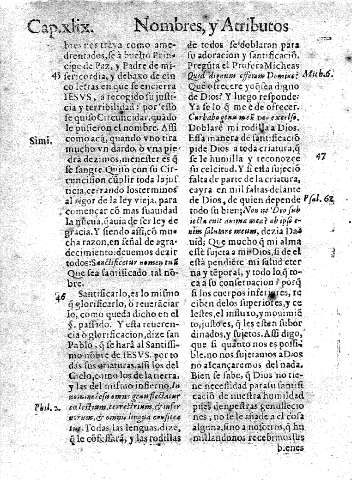 Cap. xlix. Nombres, y Atributos
bres nos traya como ame-
drentados, se à buelto Princi-
pe de Paz, y Padre de mi-
45 sericordia, y debaxo de cin
co letras en que se encierra
IESVS, a recogido su justicia
y terribilidad: por esso
se quiso Circuncidar, quãdo
le pusieron el nombre. Assi
Simi. como acà, quando vno tira
mucho vn dardo, ò vna pie
dra de zimos, menester es q̃
se sangre. Quiso con su Cir-
cuncision, cũplir toda la jus
ticia, cerrando los terminos
al rigor de la ley vieja, para
començar cõ mas suauidad
la nueua, q̃ auia de ser ley de
gracia. Y siendo assi, cõ mu
cha razon, en señal de agra-
decimiento, deuemos dezir
todos: Sanctificetur nomen tuũ
Que sea santificado tal nõ-
bre.
46 Santificarlo, es lo mismo
q̃ glorificarlo, ò reuerẽciar
lo, como queda dicho en el
§. passado. Y esta reueren-
cia ò glorificacion, dize san
Pablo, q̃ se harà al Santissi-
mo nõbre de IESVS, por to
das sus criaturas, assi los del
Cielo, como los de la tierra,
y las del mismo infierno. In
nomine Iesu omne genu flectatur
Phil. 2. cœlestium, terrestrium, & infer
norum, & omnis lingua confitea
tur. Todas las lenguas, dize,
q̃ le cõfessarà, y las rodillas
de todos se doblaran para
su adoracion y santificaciõ.
Pregũta el Profeta Micheas
Quid dignum offeram Domino? Mich. 6.
Que ofrecere yo q̃ sea digno
de Dios? Y luego responde:
Ya se lo q̃ me e de ofrecer.
Curbabo genu meo Deo excelso,
Doblarè mi rodilla a Dios.
Essa manera de santificaciõ
pide Dios a toda criatura, q̃
se le humilla y reconozca 47
su celsitud. Y si esta sujeciõ
falta de parte de la criatura,
cayra en mil faltas delante
de Dios, de quien depende Psal. 61.
todo su bien: Non ne Deo sub
iecta erit anima mea? ab ipso e-
nim salutare meum, dezia Da-
uid; Que mucho q̃ mi alma
estè sujeta a mi Dios, si de el
està pendiẽte mi salud eter
na y tẽporal, y todo lo q̃ to-
ca a su conseruacion? porq̃
si los cuerpos inferiores, re
ciben de los superiores, y ce
lestes, el influxo, y mouimiẽ
to, justo es, q̃ les estèn subor
dinados, y sujetos. Assi digo,
que si quanto nos es possi-
ble, no nos sujetamos a Dios
no alcançaremos del nada.
Bien se sabe, q̃ Dios no tie-
ne necessidad para su santifi
cacion de nuestra humildad
pues den pestras genuflexio
nes, no se le añade a el cosa
alguna, sino a nosotros, q̃ hu
millandonos recebimos sus
bienes